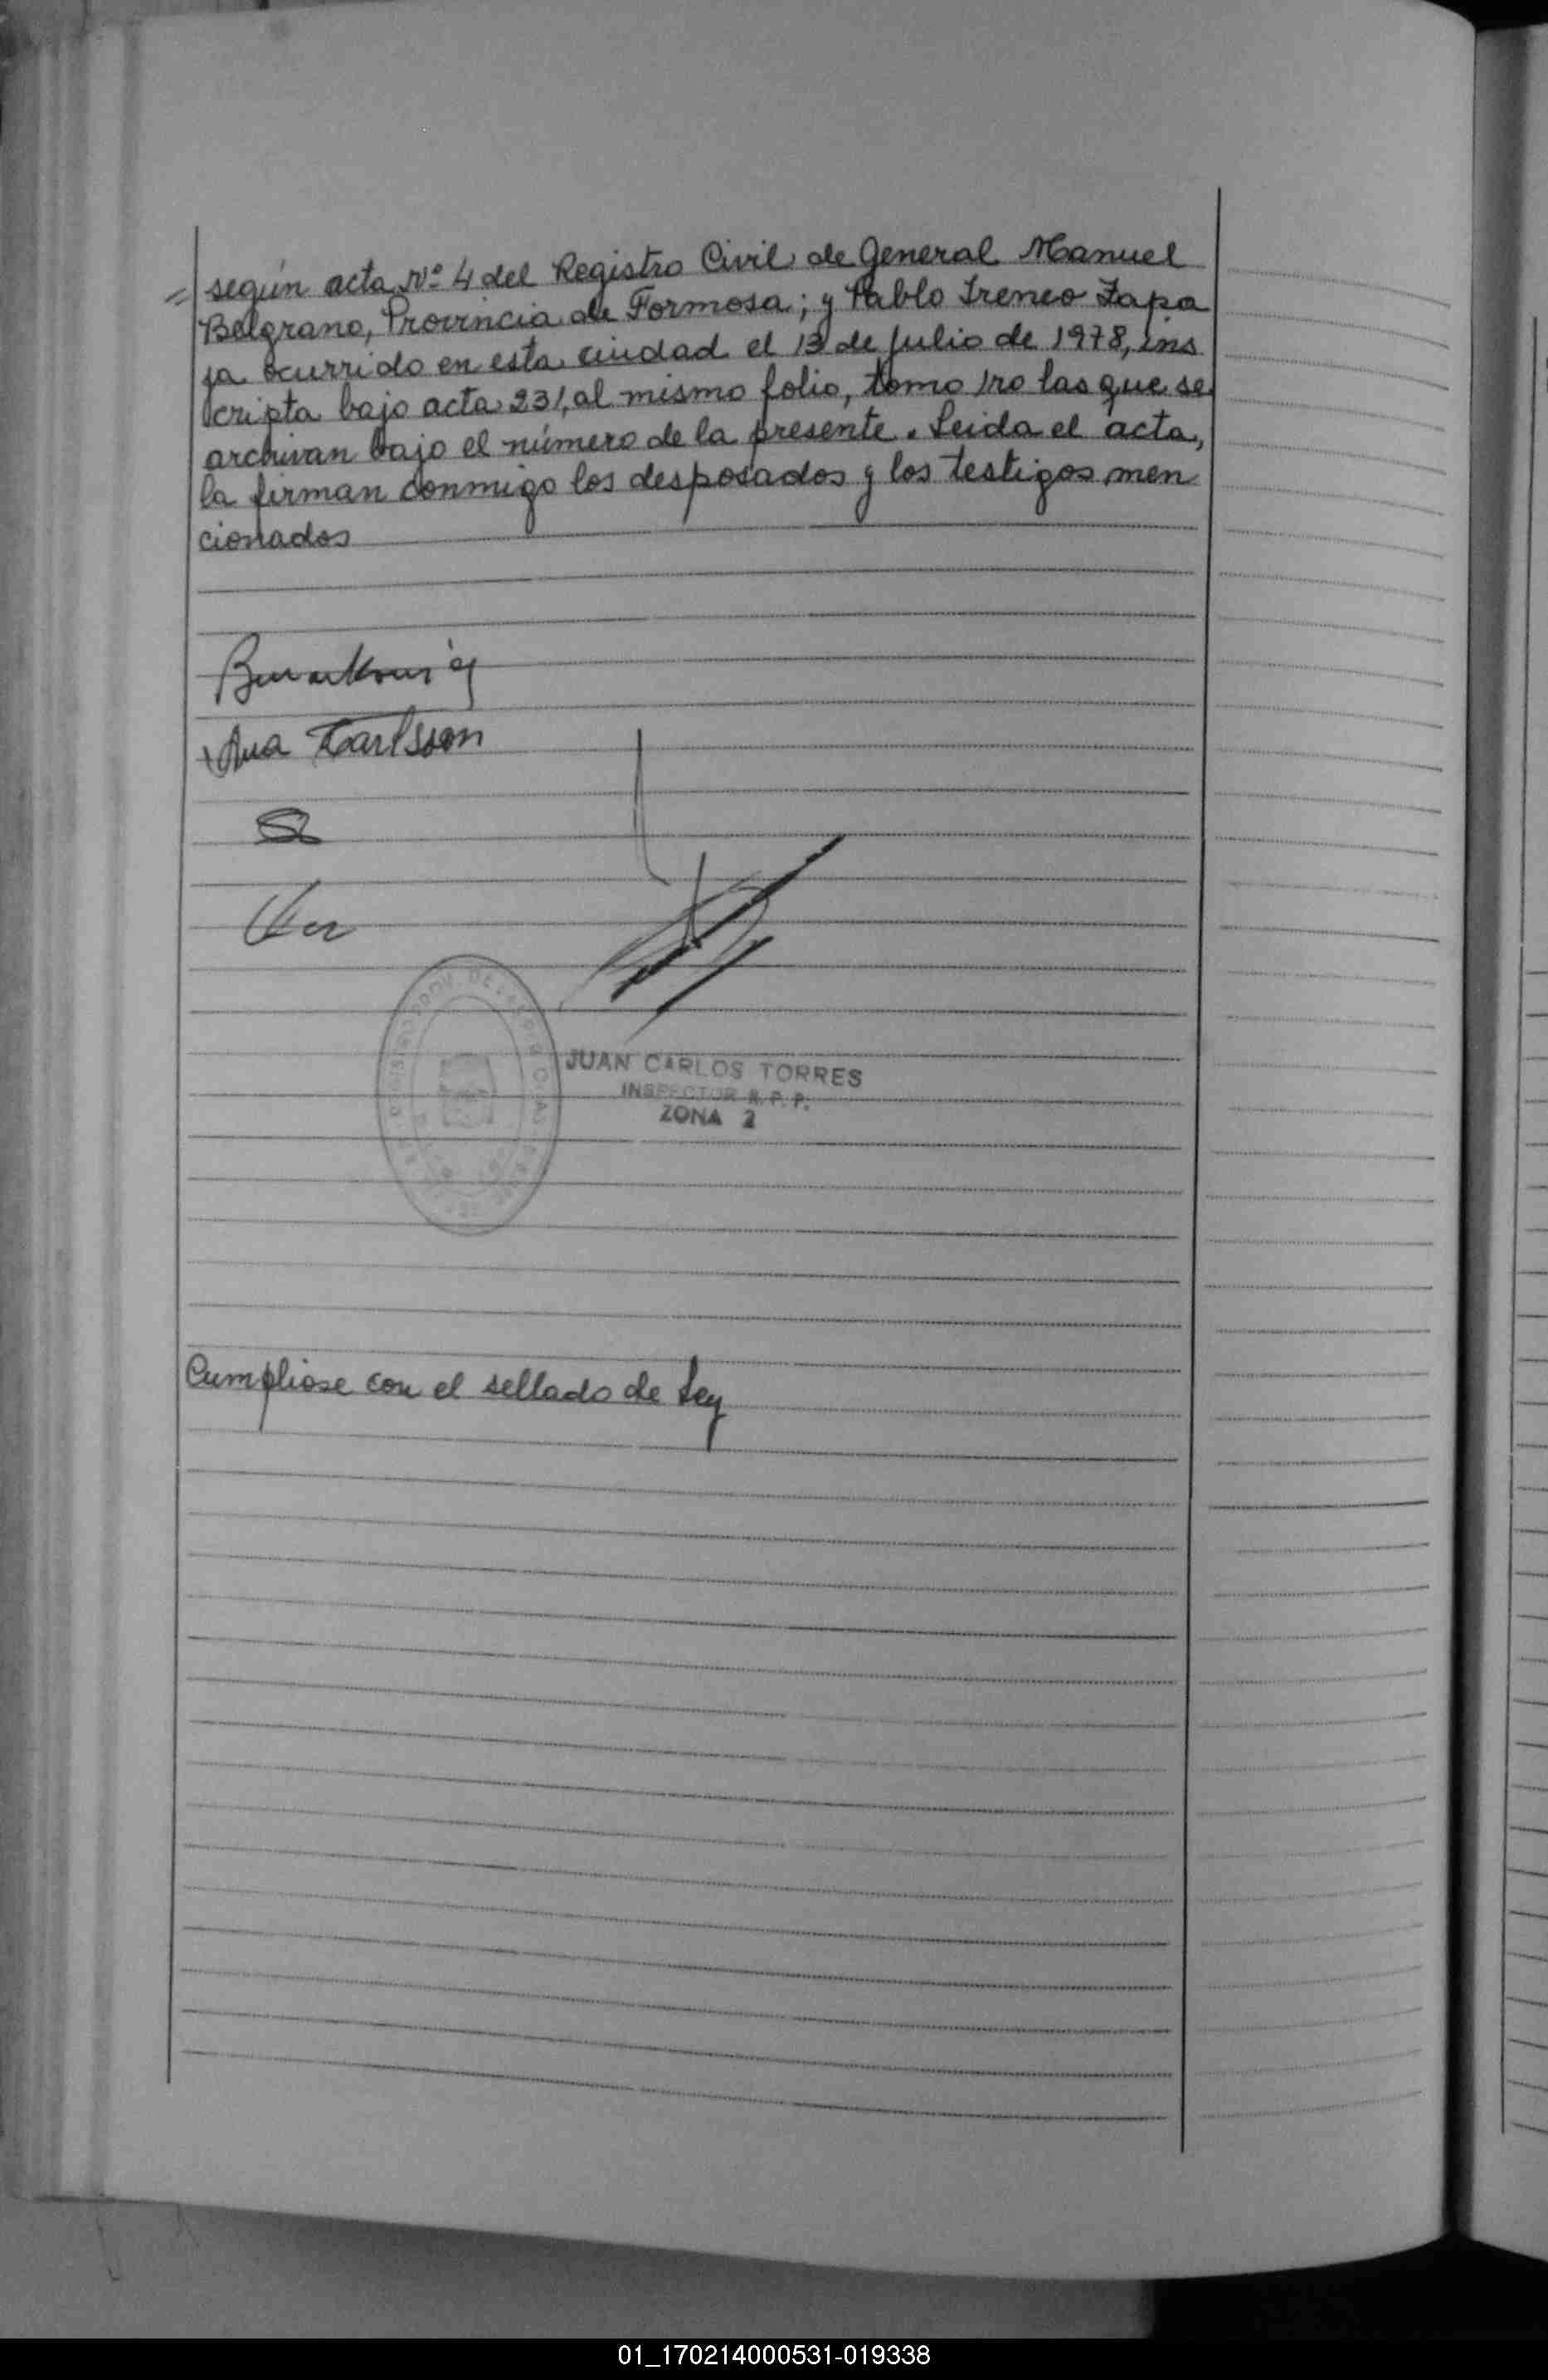 = según acta Nº 4 del Registro Civil de General Manuel
Belgrano, Provincia de Formosa; y Pablo Ireneo Zapa
ja ocurrido en esta ciudad el 13 de Julio de 1978, ins
cripta bajo acta 231, al mismo folio, tomo 1ro las que se
archivan bajo el número de la presente. Leida el acta,
la firman conmigo los desposados y los testigos men
cionados
Ana Karlsson
JUAN CARLOS TORRES
INSPECTOR R. P. P.
ZONA 2
Cumpliose con el sellado de Ley
01_170214000531-019338